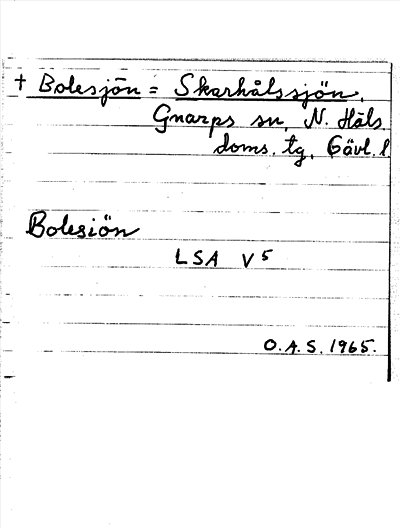 † Bolesjön = Skarhålssjön.
Gnarps sn, N. Häls.
doms. tg, Gävl. l
Bolesiön
LSA V 5
O.A.S. 1965.